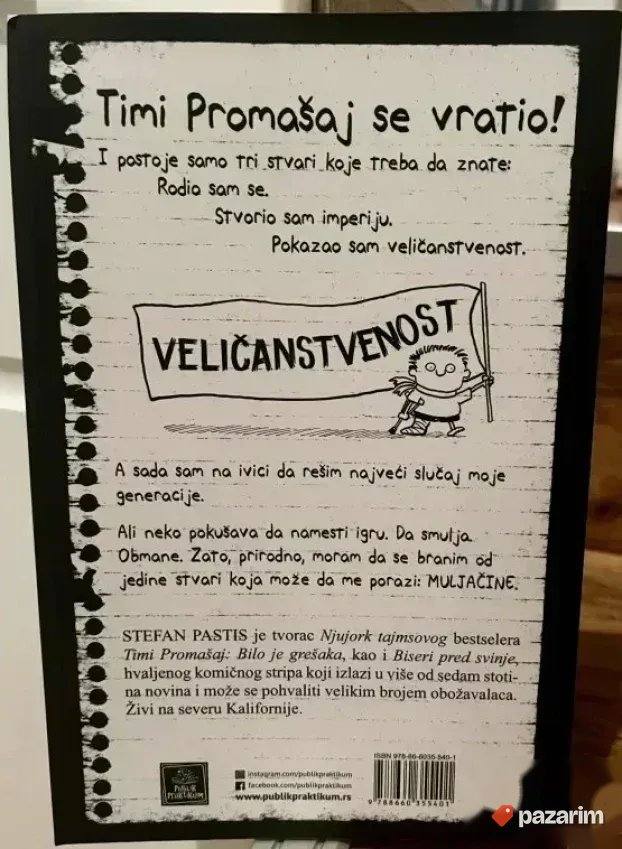 Timi Promašaj se vratio!
I postoje samo tri stvari koje treba da znate:
Rodio sam se.
Stvorio sam imperiju.
Pokazao sam veličanstvenost.
VELIČANSTVENOST
A sada sam na ivici da rešim najveći slučaj moje
generacije.
Ali neko pokušava da namesti igru. Da smulja.
Obmane. Zato, prirodno, moram da se branim od
jedine stvari koja može da me porazi: MULJAČINE.
STEFAN PASTIS je tvorac Njujork tajmsovog bestselera
Timi Promašaj: Bilo je grešaka, kao i Biseri pred svinje,
hvaljenog komičnog stripa koji izlazi u više od sedam stoti-
na novina i može se pohvaliti velikim brojem obožavalaca.
Živi na severu Kalifornije.
ISBN 978-86-6035-540-1
PUBLIK PRAKTIKUM
instagram.com/publikpraktikum
facebook.com/publikpraktikum
www.publikpraktikum.rs
9 788660 355401
pazarim